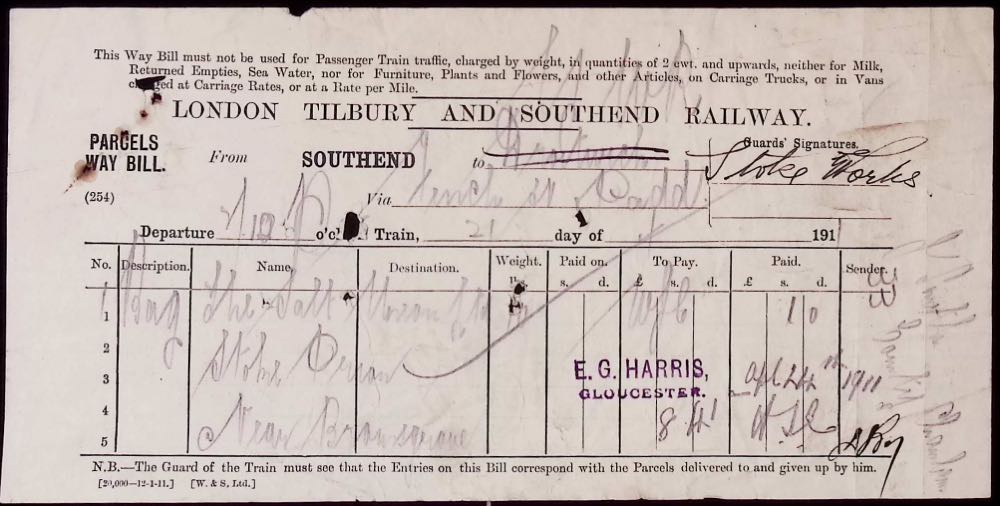 This Way Bill must not be used for Passenger Train traffic, charged by weight, in quantities of 2 cwt. and upwards, neither for Milk,
Returned Empties, Sea Water, nor for Furniture, Plants and Flowers, and other Articles, on Carriage Trucks, or in Vans
charged at Carriage Rates, or at a Rate per Mile.
LONDON TILBURY AND SOUTHEND RAILWAY.
PARCELS
WAY BILL.
From SOUTHEND to
Guards' Signatures.
Stoke Works
(254)
Via
Departure o'cl Train, 21 day of 191
No. Description. Name, Destination. Weight. Paid on. To Pay. Paid. Sender.
s. d. £ s. d. £ s. d.
33
1 Bag The Salt Union Ltd 10
2 Stoke
3 E. G. HARRIS, Apl 24th 1911
GLOUCESTER.
4 Near Bromsgrove
5
N.B.—The Guard of the Train must see that the Entries on this Bill correspond with the Parcels delivered to and given up by him.
[20,000—12-1-11.] [W. & S., Ltd.]